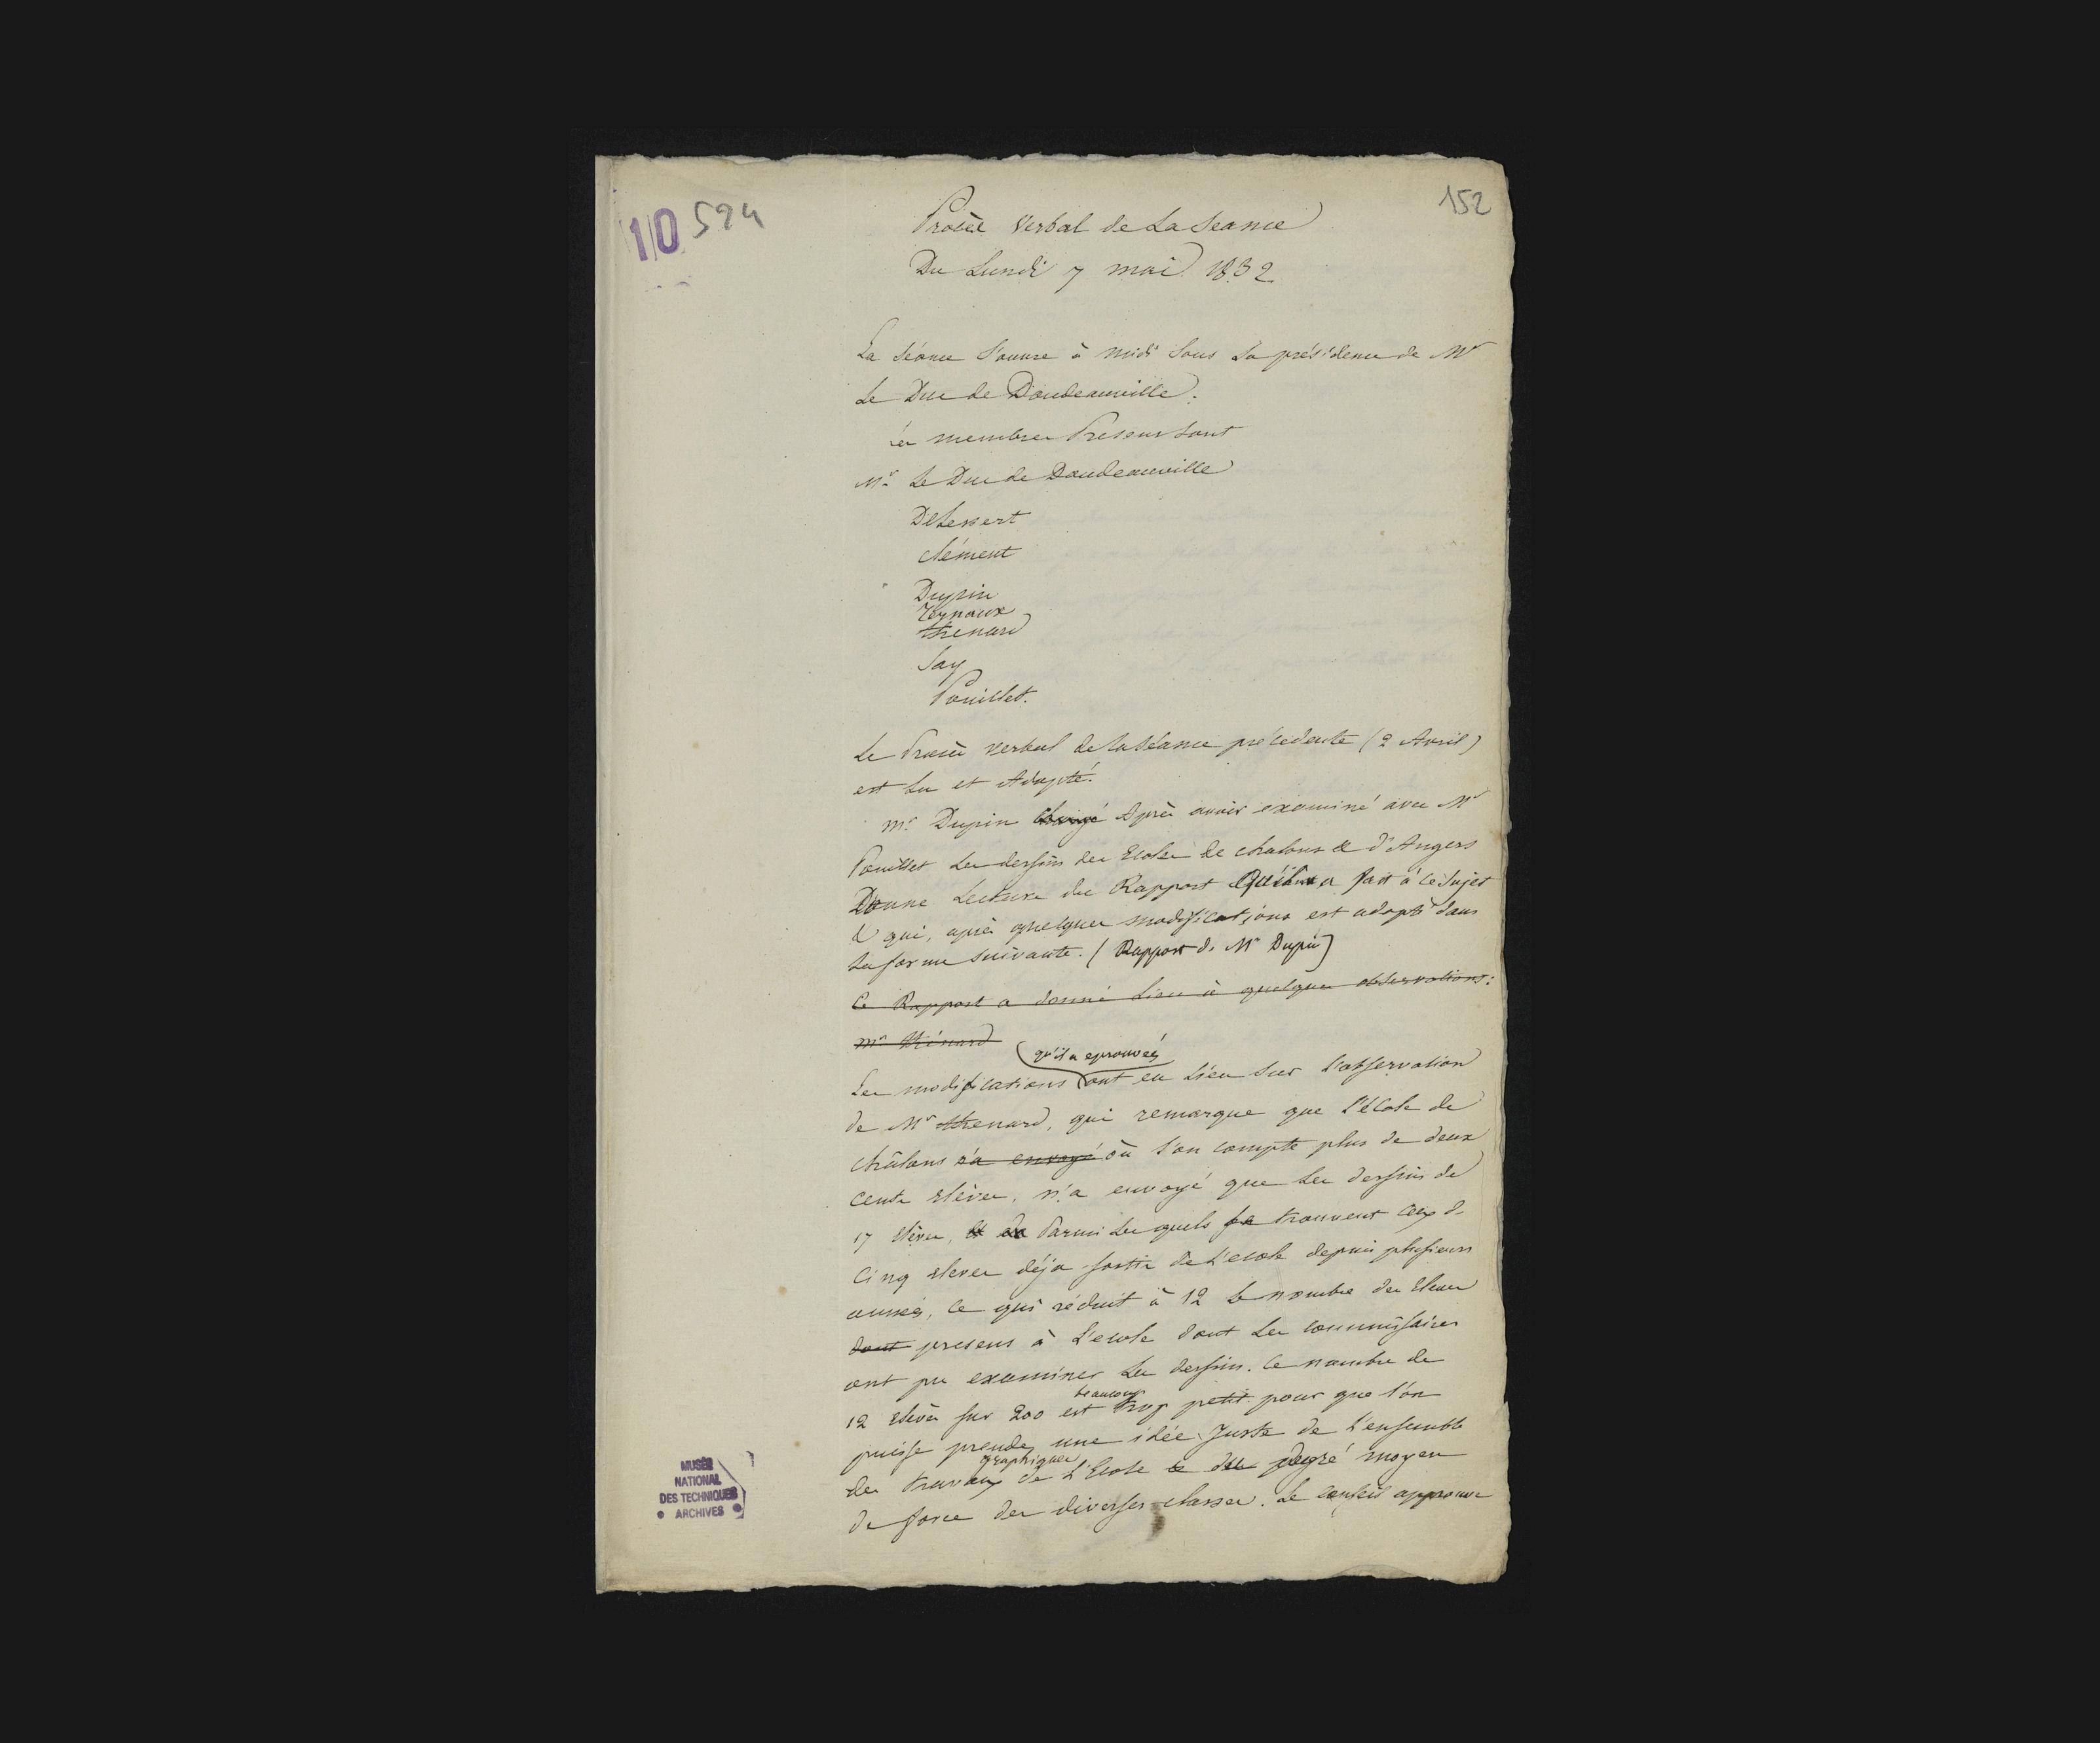 152
10 524
Procès Verbal de La Seance
Du Lundi 7 mai 1832
La séance s'ouvre à midi sous la présidence de Mr
Le Duc de Doudeauville.
les membres Presens sont
Mr. Le Duc de Doudeauville
Delessert
Clément
Dupin
Ternaux
thenard
Say
Pouillet.
Le Procès verbal de la séance précédente (2 Avril)
est lu et Adopté.
Mr. Dupin chargé Après avoir examiné avec Mr
Pouillet les dessins des Ecoles de chalons & d'Angers
Donne Lecture du Rapport Qu'il a fait à ce sujet
& qui, après quelques modifications est adopté dans
la forme suivante. (Rapport de Mr Dupin)
Ce Rapport a donné lieu à quelques observations:
Mr thénard
qu'il a eprouvées
Les modifications ont eu lieu sur l'observation
de Mr thenard, qui remarque que l'école de
châlons n'a envoyé où l'on compte plus de deux
cents elèves, n'a envoyé que les dessins de
17 elèves, et Parmi les quels se trouvent ceux de
cinq eleves déja sortis de l'ecole depuis plusieurs
années, ce qui réduit à 12 le nombre des eleves
dont presens à l'ecole dont les commissaires
ont pu examiner les dessins. ce nombre de
beaucoup
12 elèves sur 200 est trop petit pour que l'on
puisse prendre une idée Juste de l'ensemble
graphiques
des travaux de l'Ecole & du degré moyen
de force des diverses classes. Le conseil approuve
MUSÉE
NATIONAL
DES TECHNIQUES
ARCHIVES